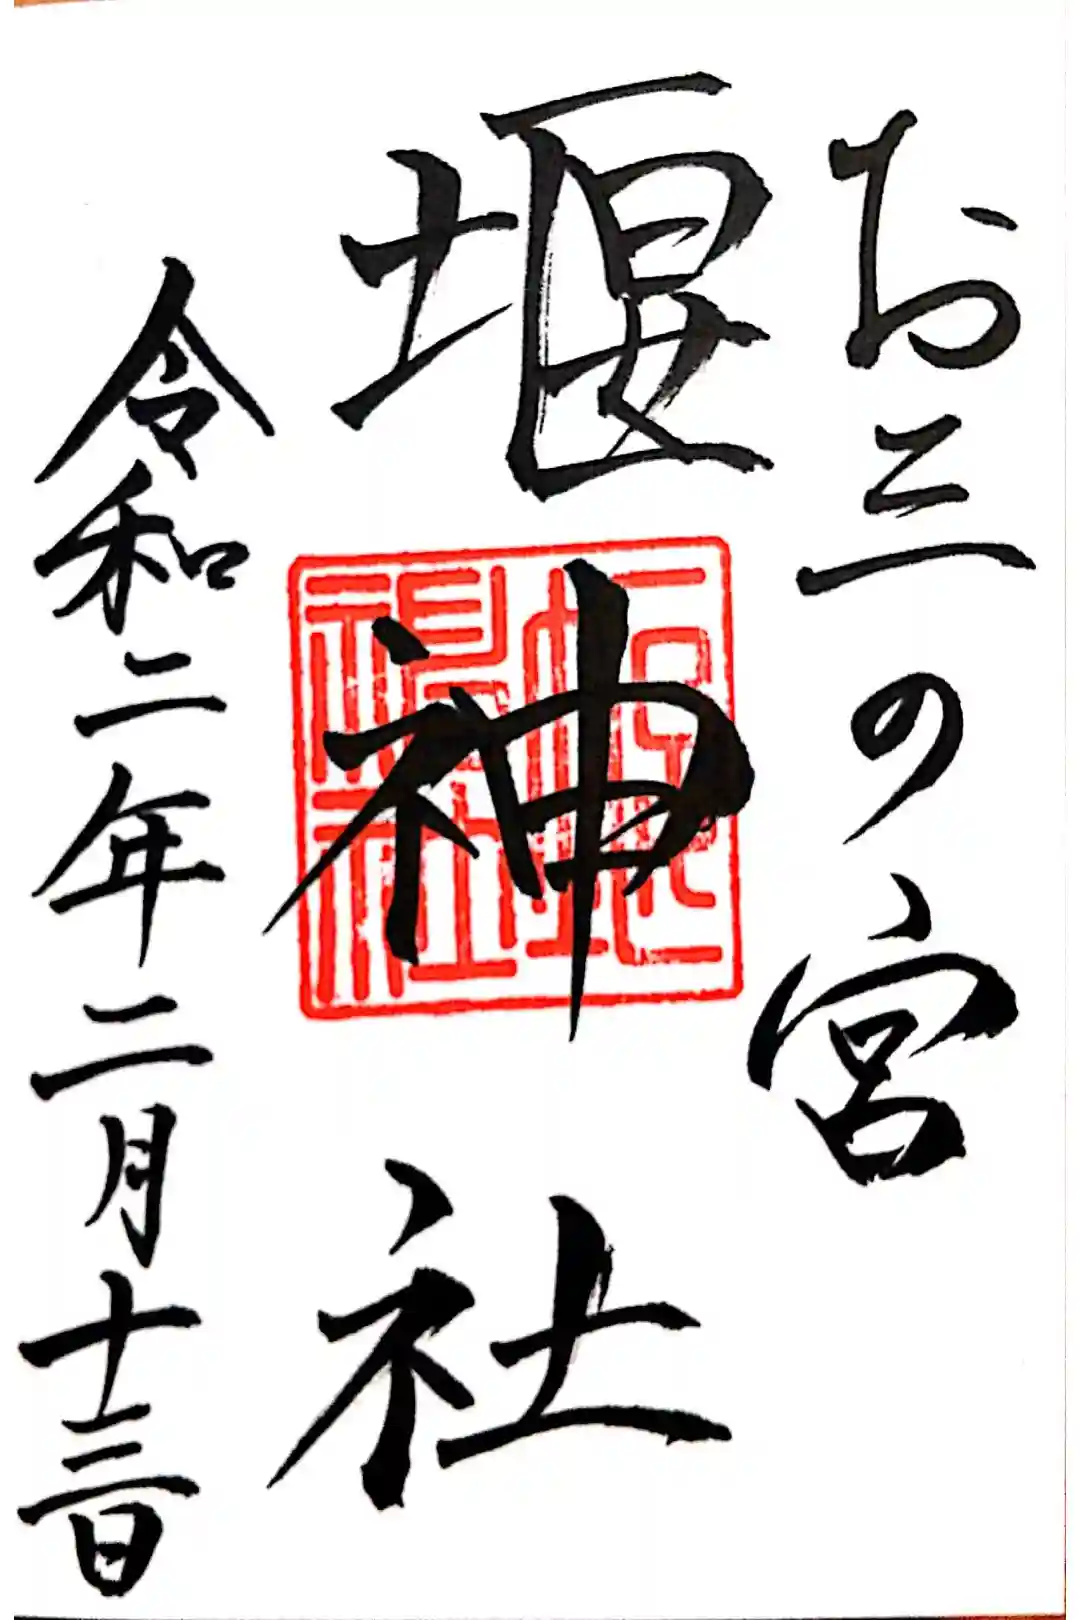 お三の宮
堰神社
堰神社
令和二年二月十三日